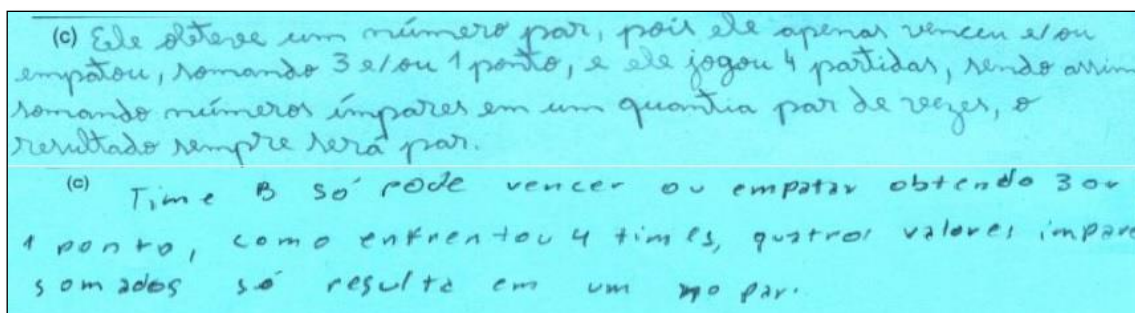 (c) Ele obteve um número par, pois ele apenas venceu e/ou
empatou, somando 3 e/ou 1 ponto, e ele jogou 4 partidas, sendo assim
somando números ímpares em um quantia par de vezes, o
resultado sempre será par.
(c) Time B só pode vencer ou empatar obtendo 3 ou
1 ponto, como enfrentou 4 times, quatros valores impare
somados só resulta em um no par.